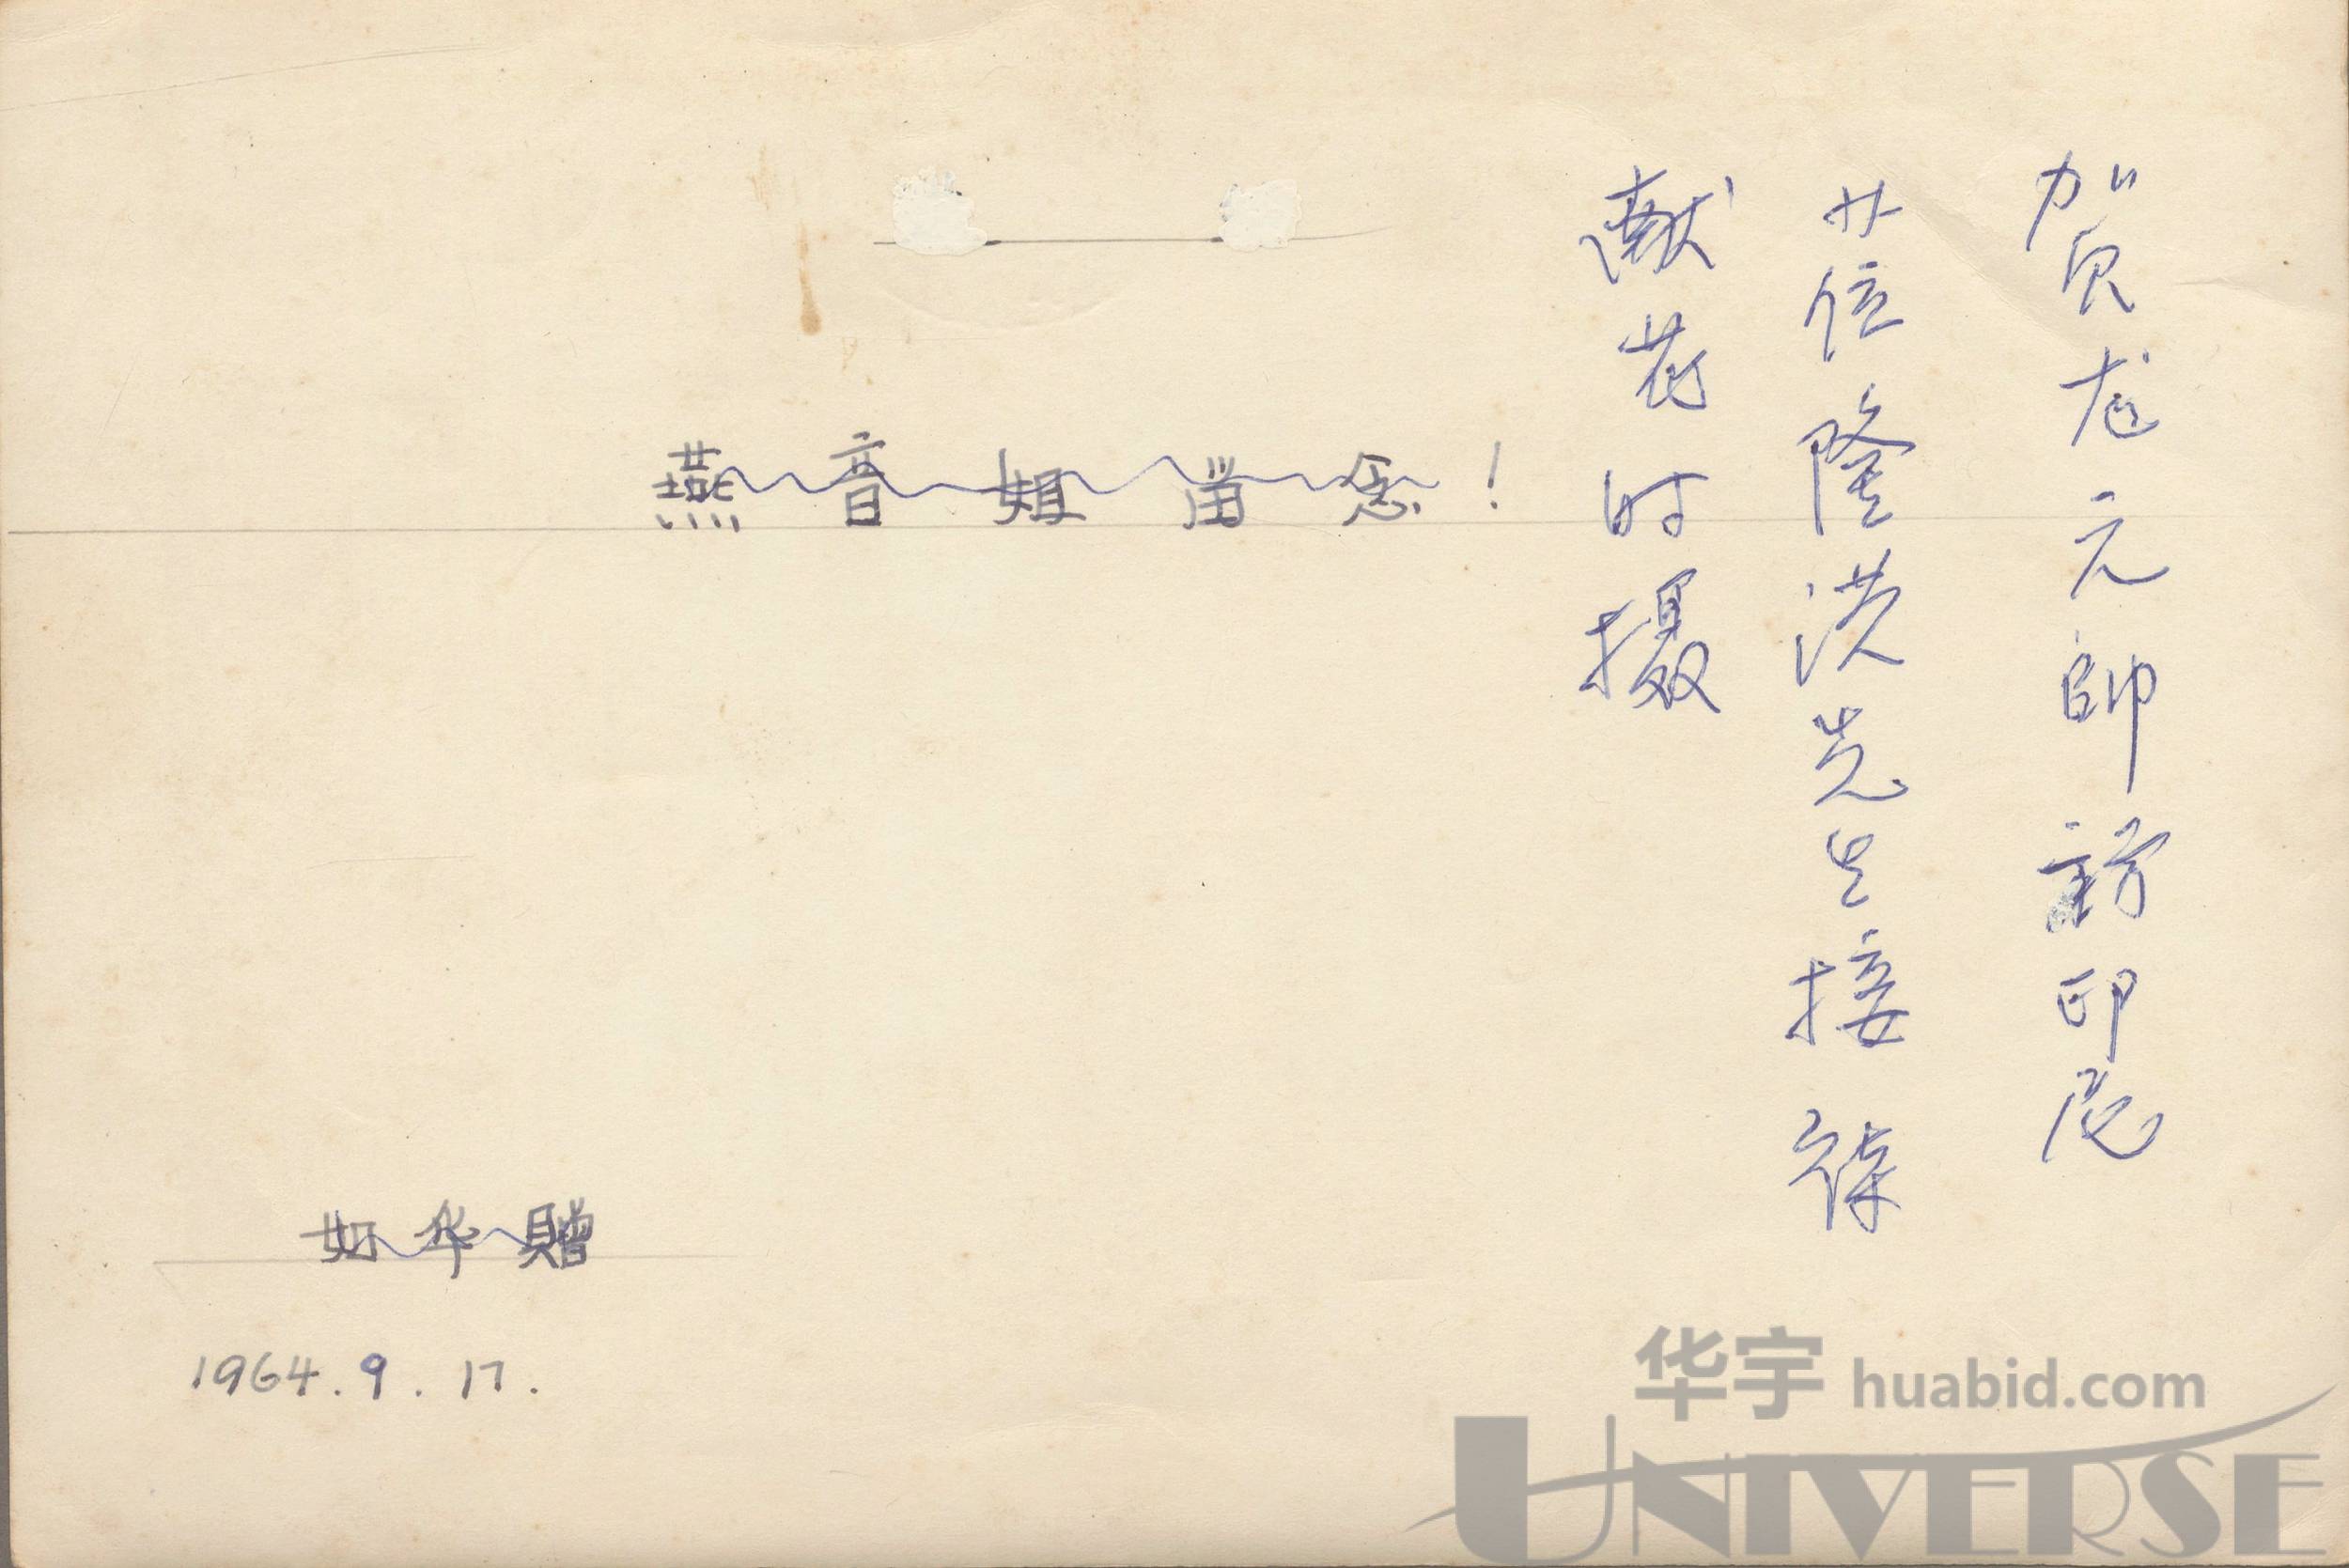 贺龙元帥訪印尼
莅隆洪先生接
献花时摄
燕音姐留念!
如华贈
1964.9.17.
华宇 huabid.com
UNIVERSE